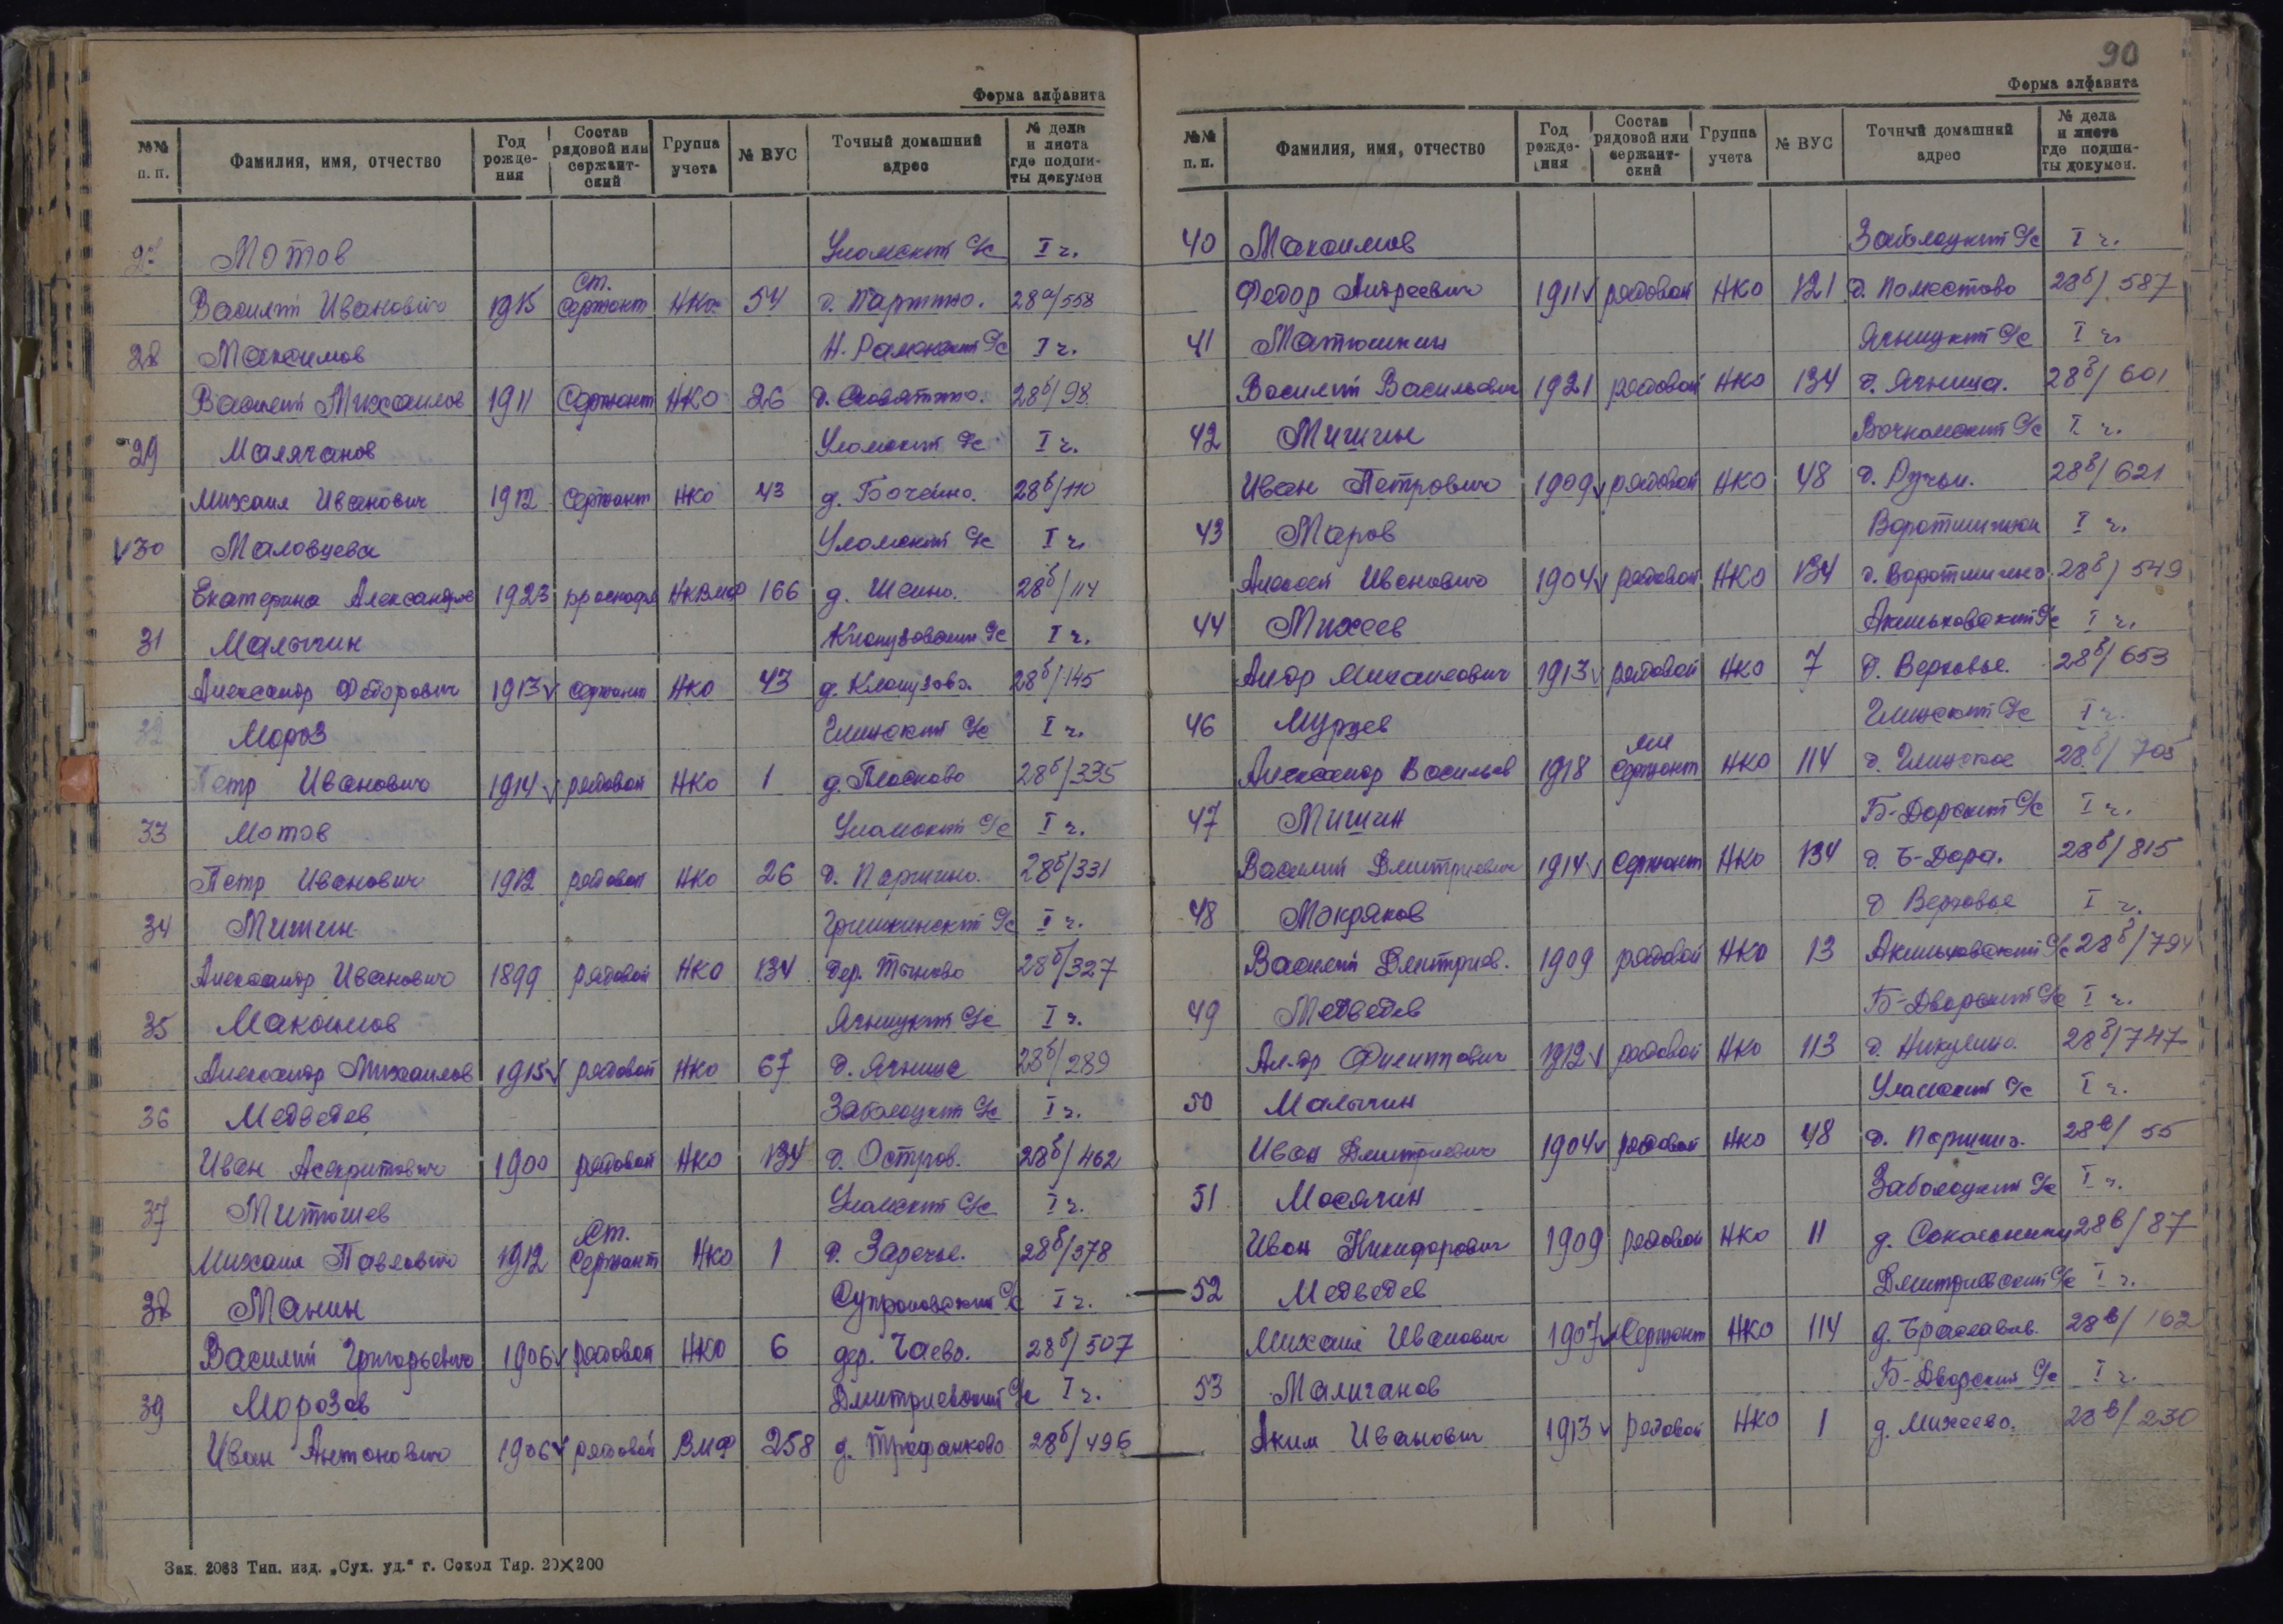 Форма алфавита
№№ п. п. Фамилия, имя, отчество Год рожде-ния Состав рядовой или сержант-ский Группа учета № ВУС Точный домашний адрес № дела и листа где подши-ты докумен
27 Мотов Уломский С/с I ч.
Василий Иванович 1915 Ст. Сержант НКО 54 д. 28а/558
28 Максимов I ч.
Василий Михайлов 1911 Сержант НКО 26 28б/98
29 Малячанов Уломский С/с I ч.
Михаил Иванович 1912 Сержант НКО 43 д. Бочейно. 28б/110
30 Маловцева Уломский С/с I ч.
Екатерина 1923 НКВМФ 166 д. Шеино. 28б/114
31 Малычин С/с I ч.
Александр Федорович 1913 сержант НКО 43 д. Клопузово. 28б/145
32 Мороз Глинский С/с I ч.
Петр Иванович 1914 рядовой НКО 1 д. Плосково 28б/335
33 Мотов Уломский С/с I ч.
Петр Иванович 1912 рядовой НКО 26 д. 28б/331
34 Мишин Гришкинский С/с I ч.
Александр Иванович 1899 рядовой НКО 134 дер. Тычково 28б/327
35 Максимов Ягницкий С/с I ч.
Александр Михайлов 1915 рядовой НКО 67 д. Ягница 28б/289
36 Медведев Заболоцкий С/с I ч.
Иван Аскритович 1900 рядовой НКО 134 д. Остров. 28б/462
37 Митюшев Уломский С/с I ч.
Михаил Павлович 1912 Ст. Сержант НКО 1 д. Заречье. 28б/378
38 Манин Супроновский С/с I ч.
Василий Григорьевич 1906 рядовой НКО 6 дер. Чаево. 28б/507
39 Морозов Дмитриевский С/с I ч.
Иван Антонович 1906 рядовой ВМФ 258 д. Трофанково 28б/496
Зак. 2083 Тип. изд. „Сух. уд." г. Сокол Тир. 20×200
90
Форма алфавита
№№ п. п. Фамилия, имя, отчество Год рожде-ния Состав рядовой или сержант-ский Группа учета № ВУС Точный домашний адрес № дела и листа где подши-ты докумен.
40 Максимов Заболоцкий С/с I ч.
Федор Андреевич 1911 рядовой НКО 121 д. Поместово 28б/587
41 Матюшкин Ягницкий С/с I ч.
Василий Васильевич 1921 рядовой НКО 134 д. Ягница. 28б/601
42 Мишин С/с I ч.
Иван Петрович 1909 рядовой НКО 48 д. Ручьи. 28б/621
43 Маров I ч.
Алексей Иванович 1904 рядовой НКО 134 д. Воротишино 28б/549
44 Михеев Акиньховский С/с I ч.
Ал-др Михайлович 1913 рядовой НКО 7 д. Верховье. 28б/653
46 Мурзев Глинский С/с I ч.
Александр Васильев 1918 мл Сержант НКО 114 д. Глинское 28б/705
47 Мишин Б-Дорский С/с I ч.
Василий Дмитриевич 1914 Сержант НКО 134 д. Б-Дора. 28б/815
48 Мокряков д Верховье I ч.
Василий Дмитриев. 1909 рядовой НКО 13 Акиньховский С/с 28б/794
49 Медведев Б-Дворский С/с I ч.
Ал-др Филиппович 1912 рядовой НКО 113 д. Никулино. 28б/747
50 Малычин Уломский С/с I ч.
Иван Дмитриевич 1904 рядовой НКО 48 д. 28в/55
51 Мосягин Заболоцкий С/с I ч.
Иван Никифорович 1909 рядовой НКО 11 д. 28в/87
52 Медведев Дмитриевский С/с I ч.
Михаил Иванович 1907 Сержант НКО 114 д. 28в/162
53 Маличанов Б-Дворский С/с I ч.
Аким Иванович 1913 рядовой НКО 1 д. Михеево. 28в/230